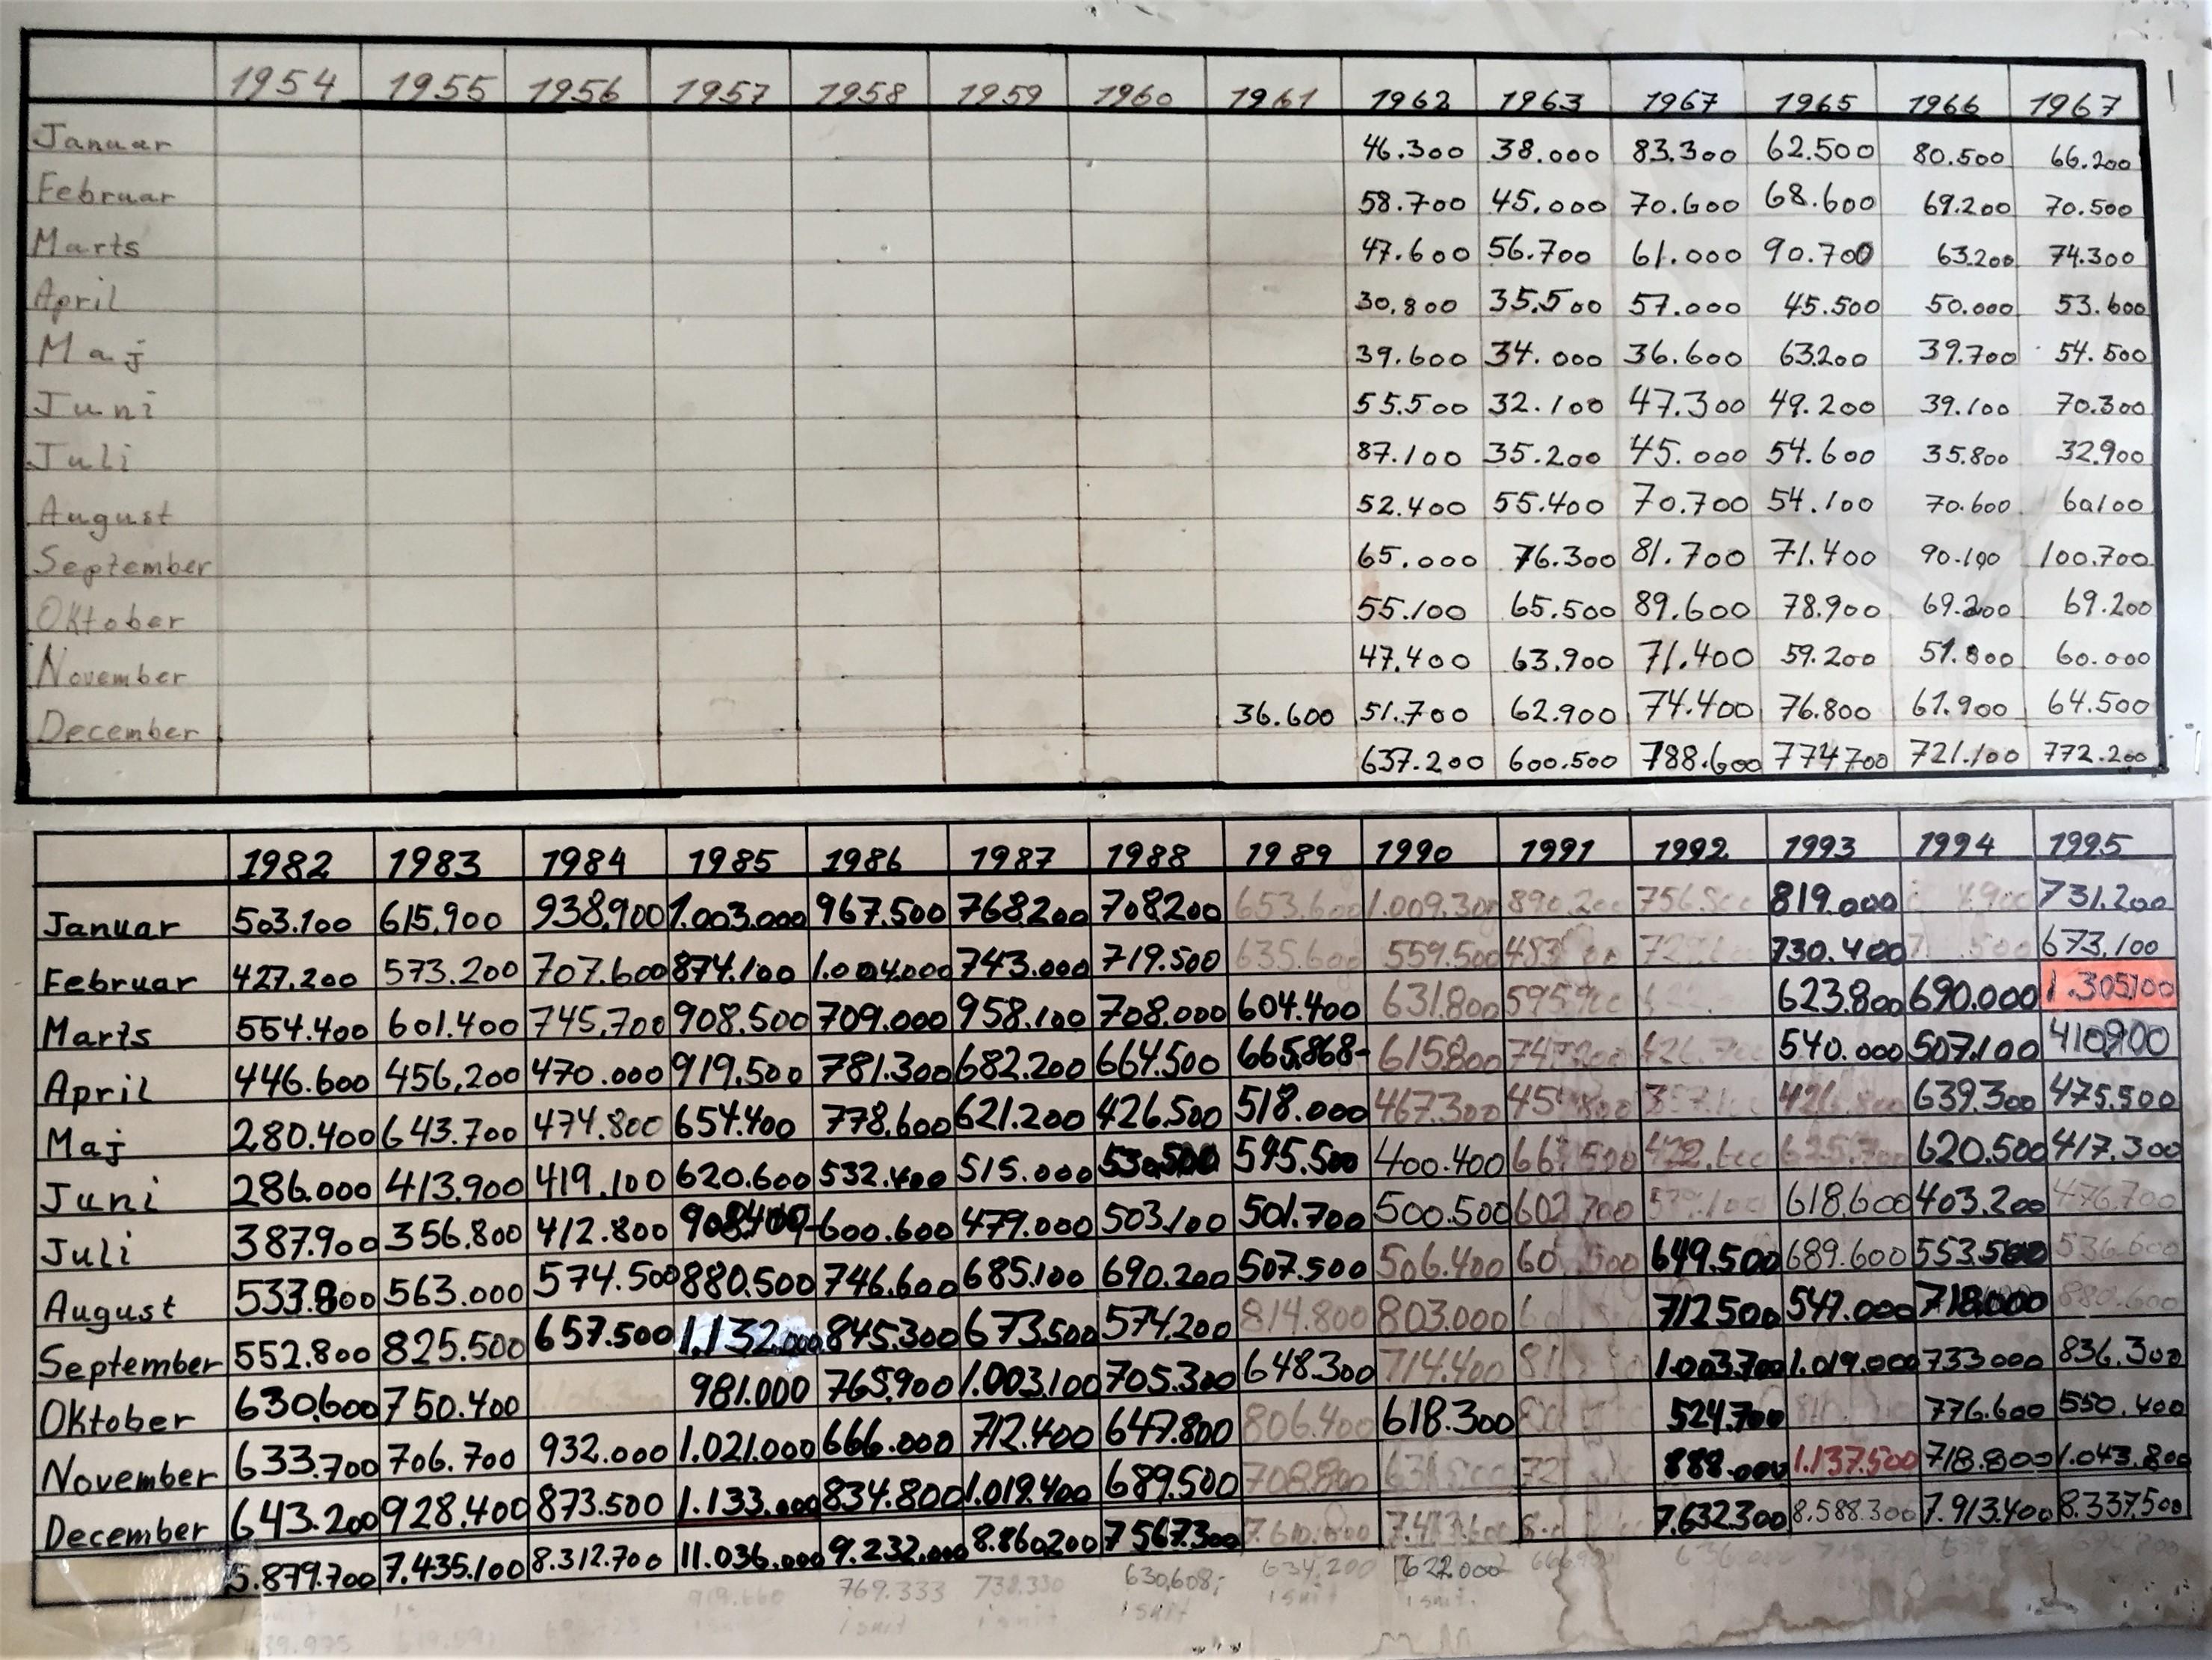 1954 1955 1956 1957 1958 1959 1960 1961 1962 1963 1967 1965 1966 1967
Januar 46.300 38.000 83.300 62.500 80.500 66.200
Februar 58.700 45.000 70.600 68.600 69.200 70.500
Marts 47.600 56.700 61.000 90.700 63.200 74.300
April 30.800 35.500 57.000 45.500 50.000 53.600
Maj 39.600 34.000 36.600 63.200 39.700 54.500
Juni 55.500 32.100 47.300 49.200 39.100 70.300
Juli 87.100 35.200 45.000 54.600 35.800 32.900
August 52.400 55.400 70.700 54.100 70.600
September 65.000 76.300 81.700 71.400 90.100 100.700
Oktober 55.100 65.500 89.600 78.900 69.200 69.200
November 47.400 63.900 71.400 59.200 51.800 60.000
December 36.600 51.700 62.900 74.400 76.800 61.900 64.500
637.200 600.500 788.600 774700 721.100 772.200
1982 1983 1984 1985 1986 1987 1988 1989 1990 1991 1992 1993 1994 1995
Januar 503.100 615.900 938.900 1.003.000 967.500 768.200 708200 653.600 1.009.300 890.200 819.000 731.200
Februar 427.200 573.200 707.600 874.100 1.004.000 743.000 719.500 635.600 559.500 730.400 673.100
Marts 554.400 601.400 745.700 908.500 709.000 958.100 708.000 604.400 631.800 623.800 690.000 1.305.100
April 446.600 456.200 470.000 919.500 781.300 682.200 664.500 665.868- 615.800 540.000 507.100 410900
Maj 280.400 643.700 474.800 654.400 778.600 621.200 426.500 518.000 467.300 639.300 475.500
Juni 286.000 413.900 419.100 620.600 532.400 515.000 530.500 595.500 400.400 620.500 417.300
Juli 387.900 356.800 412.800 908.400- 600.600 479.000 503.100 501.700 500.500 602.700 618.600 403.200 476.700
August 533.800 563.000 574.500 880.500 746.600 685.100 690.200 507.500 506.400 649.500 689.600 553.500 536.600
September 552.800 825.500 657.500 1.132.000 845.300 673.500 574.200 814.800 803.000 712500 547.000 718.000 880.600
Oktober 630.600 750.400 981.000 765.900 1.003.100 705.300 648.300 714.400 1.003.700 1.019.000 733000 836.300
November 633.700 706.700 932.000 1.021.000 666.000 712.400 647.800 806.400 618.300 524.700 776.600 550.400
December 643.200 928.400 873.500 1.133.000 834.800 1.019.400 689.500 708.800 888.000 1.137.500 718.800 1.043.800
5.879.700 7.435.100 8.312.700 11.036.000 9.232.000 8.860200 7567.300 7.632.300 8.588.300 7.913.400 8.337.500
769.333 738.330 630,608; 634,200 622.000
i snit i snit i snit i snit i snit.